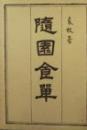 袁枚著
隨園食單